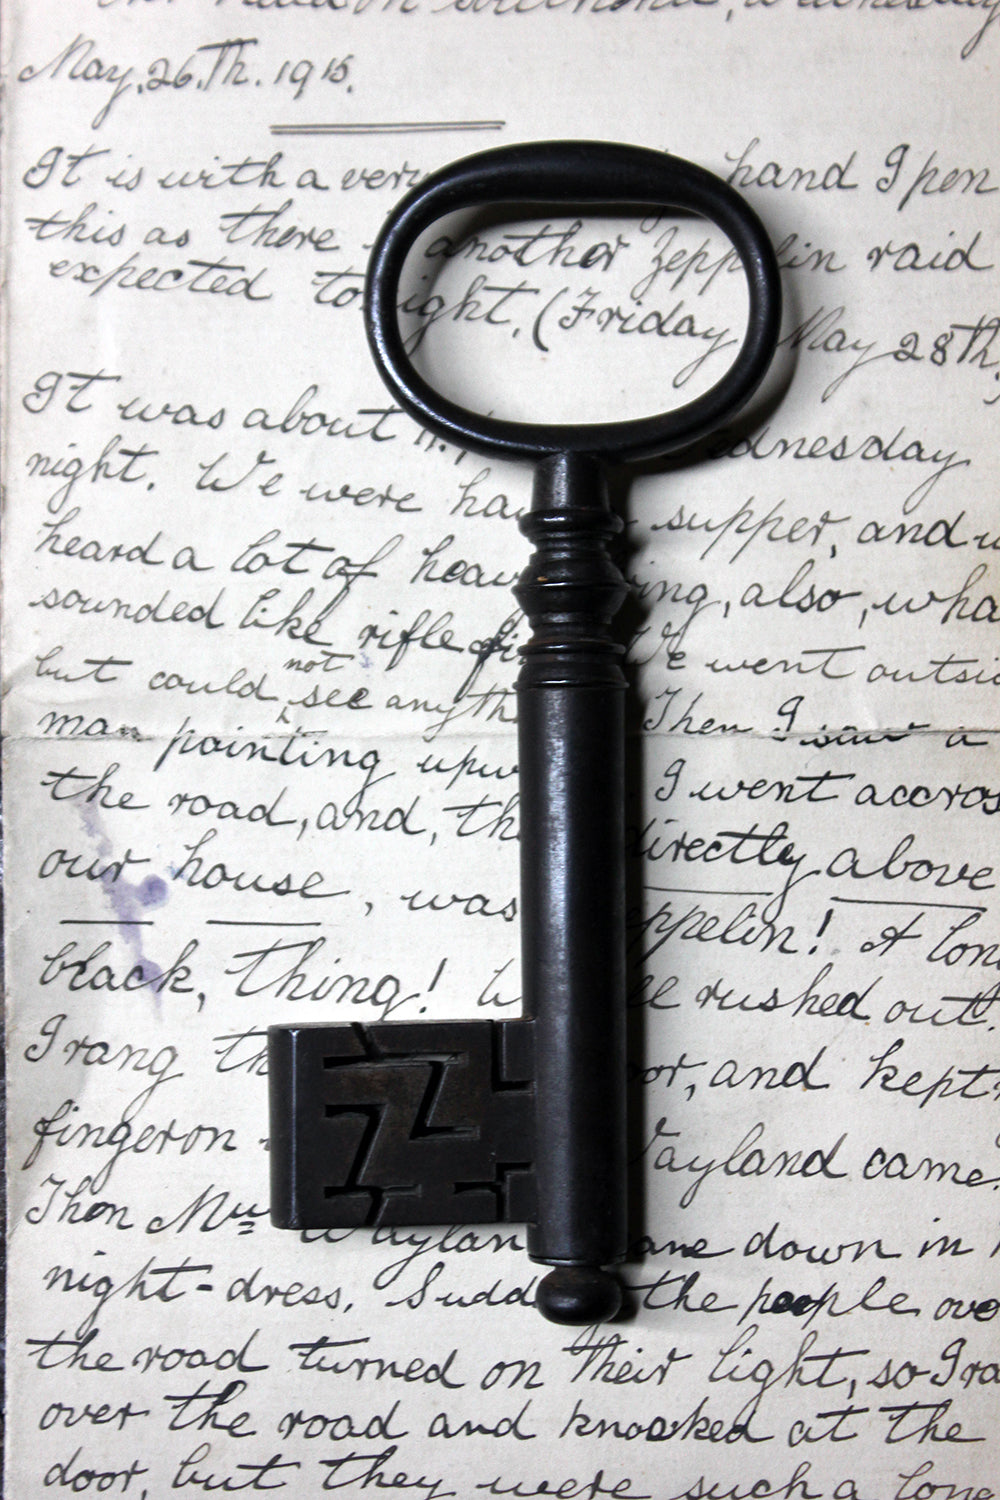 raid on southend, Wednesday
May, 26.Th. 1915.
It is with a very hand I pen
this as there another Zeppelin raid
expected tonight, (Friday May 28Th,
It was about Wednesday
night. We were supper, and
heard a lot of also, wha
sounded like rifle We went outsi
but could not see anyth Then I saw a
man pointing upw I went accros
the road, and, th directly above
our house, was eppelin! A lon
black, thing! rushed out.
I rang th and kept
finger on Wayland came.
Then Mrs Waylan came down in
night-dress. Sudd the people ove
the road turned on their light, so I ra
over the road and knocked at the
door, but they were such a long